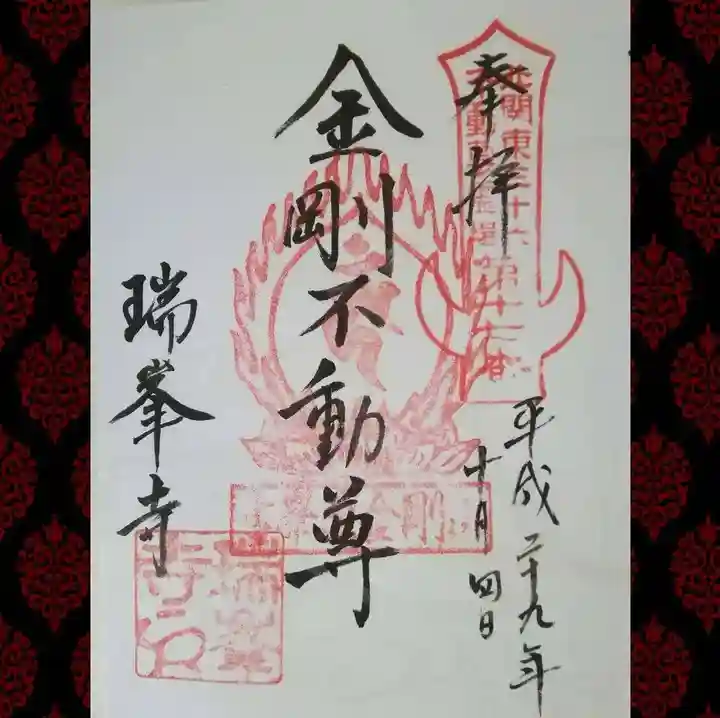 奉拝
北関東三十六
不動尊霊場第十七番
平成二十九年
十月四日
金剛不動尊
瑞峯寺
瑞峯寺印